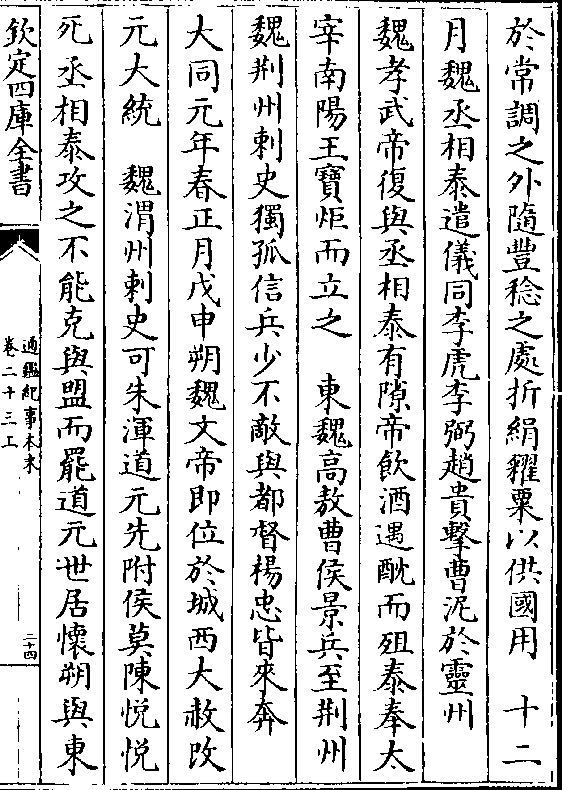 於常調之外隨豐稔之處折絹糴粟以供國用　十二
月魏丞相泰遣儀同李虎李弼趙貴擊曹泥於靈州
魏孝武帝復與丞相泰有隙帝飲酒遇酖而殂泰奉太
宰南陽王寶炬而立之　東魏高敖曹侯景兵至荆州
魏荆州刺史獨孤信兵少不敵與都督楊忠皆來奔
大同元年春正月戊申朔魏文帝即位於城西大赦改
元大統　魏渭州刺史可朱渾道元先附侯莫陳悦悦
死丞相泰攻之不能克與盟而罷道元世居懷朔與東
欽定四庫全書
通鑑紀事本末
卷二十三上
二十四